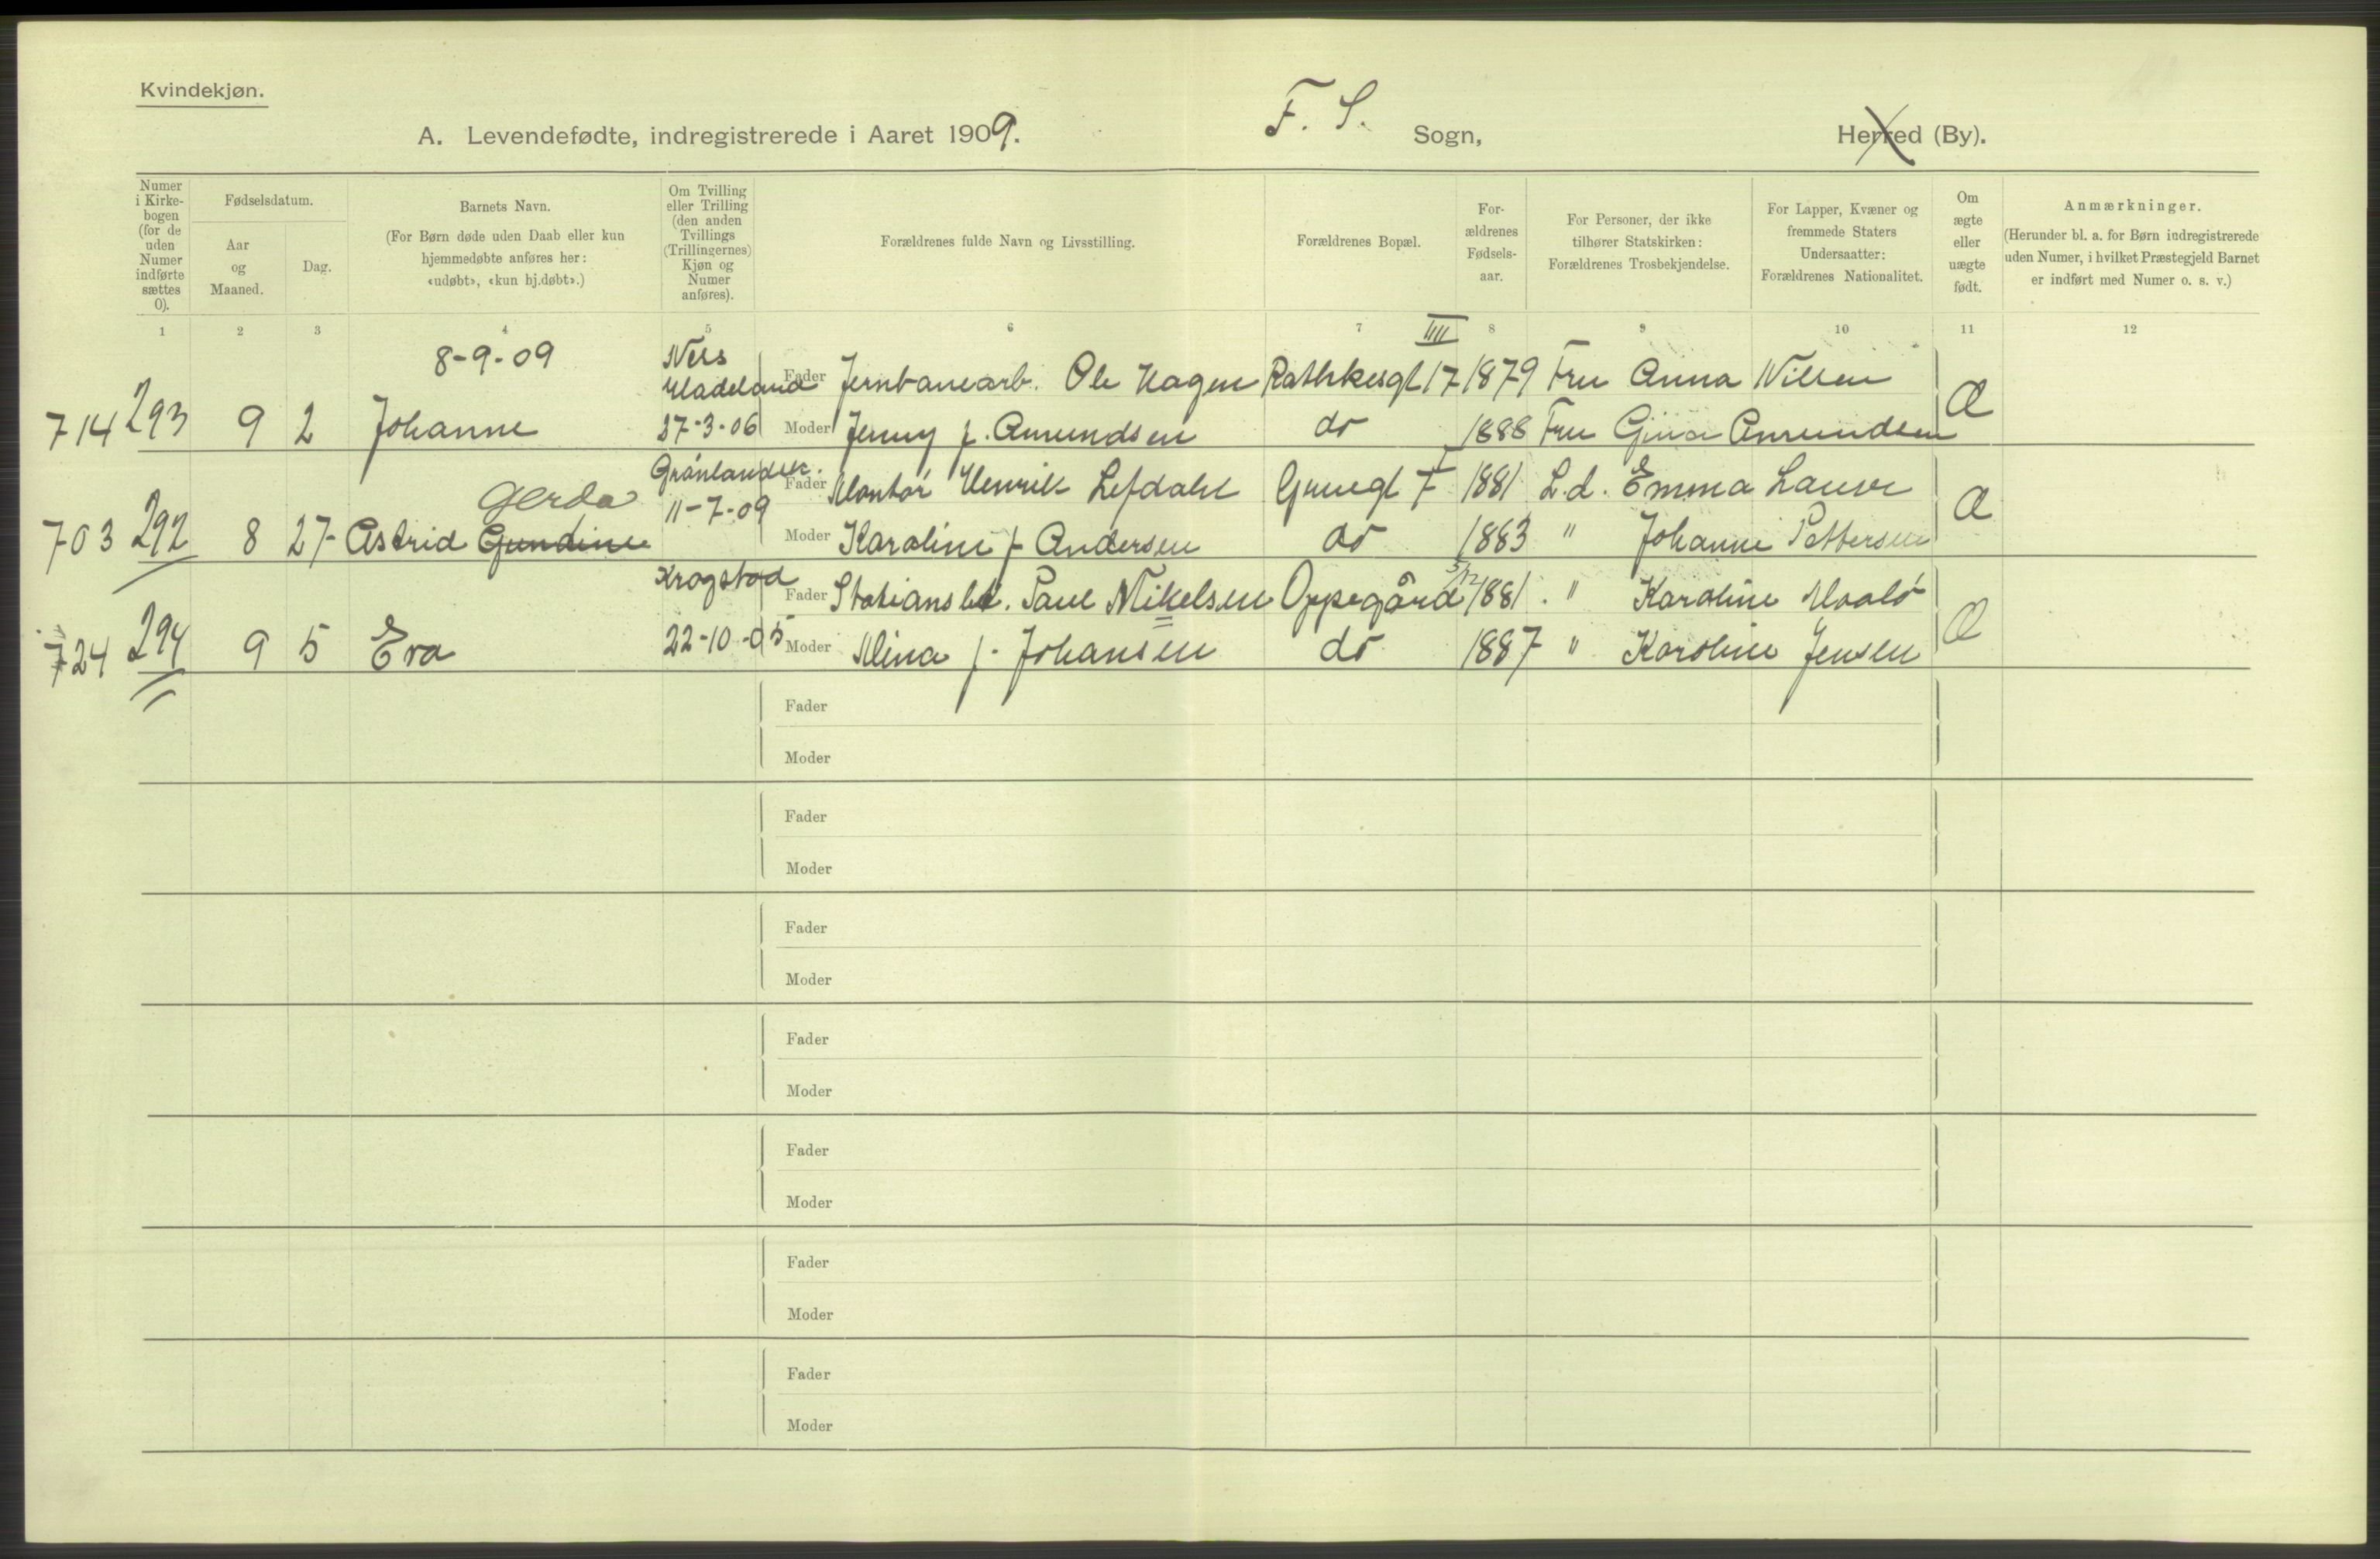 Kvindekjøn.
A. Levendefødte, indregistrerede i Aaret 1909. F. S. Sogn, Herred (By).
Numer i Kirkebogen (for de uden Numer indførte sættes 0).
Fødselsdatum.
Aar og Maaned.
Dag.
Barnets Navn.
(For Børn døde uden Daab eller kun hjemmedøbte anføres her: «udøbt», «kun hj.døbt».)
Om Tvilling eller Trilling (den anden Tvillings (Trillingernes) Kjøn og Numer anføres).
Forældrenes fulde Navn og Livsstilling.
Forældrenes Bopæl.
Forældrenes Fødselsaar.
For Personer, der ikke tilhører Statskirken: Forældrenes Trosbekjendelse.
For Lapper, Kvæner og fremmede Staters Undersaatter: Forældrenes Nationalitet.
Om ægte eller uægte født.
Anmærkninger.
(Herunder bl. a. for Børn indregistrerede uden Numer, i hvilket Præstegjeld Barnet er indført med Numer o. s. v.)
1 2 3 4 5 6 7 8 9 10 11 12
8-9-09 Nes IIII
Hadeland Fader Jernbanearb. Ole Hagen Rathkesgt 17 1879 Fru Anna Nilsen
714 293 9 2 Johanne 27-3-06 Moder Jenny f. Amundsen do 1888 Fru Gina Amundsen Æ
Grönlandsk. Fader Kontor Henrik Lefdahl Gruegt 7 1881 L.d. Emma Lauser
Gerda 11-7-09
703 292 8 27 Astrid Gundine Moder Karoline f. Andersen do 1883 " Johanne Pettersen Æ
Krogstad Fader Stationsbt. Paul Mikelsen Oppegård 5/12 1881 . " Karoline Maalö
724 294 9 5 Eva 22-10-05 Moder Mina f. Johansen do 1887 " Karoline Jensen Æ
Fader
Moder
Fader
Moder
Fader
Moder
Fader
Moder
Fader
Moder
Fader
Moder
Fader
Moder